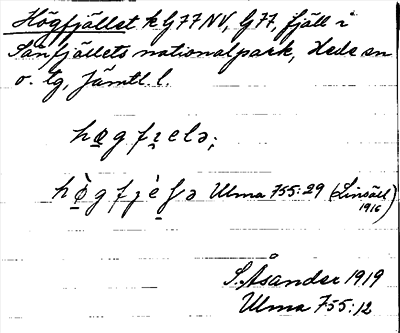 Högfjället k G77NV, G77, fjäll i
Sånfjällets nationalpark, Hede sn
o. tg, Jämtl. l.
høgfɪelə;
hø̀gfɪèſə Ulma 755:29 (Linsäll
1916)
S. Åsander 1919
Ulma 755:12